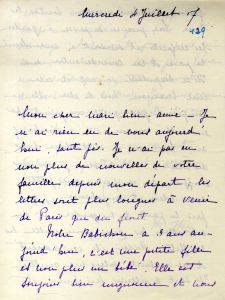 Mercredi 4 Juillet 17
129
Mon cher mari bien-aimé - Je
n'ai rien eu de vous aujourd
hui, tant pis. Je n'ai pas eu
non plus de nouvelles de votre
famille depuis mon départ - les
lettres sont plus longues à venir
de Paris que du front.
Notre Babichou a 3 ans au-
jourd'hui, c'est une petite fille
et non plus un bébé. Elle est
toujours bien mignonne et nous